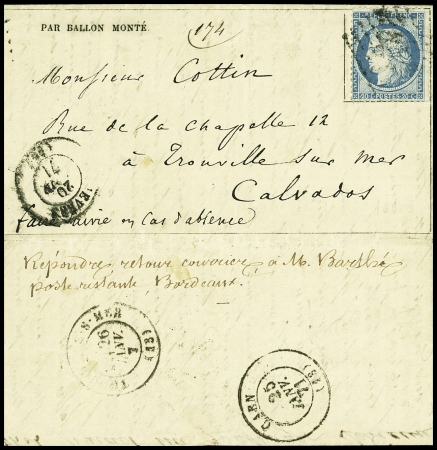 PAR BALLON MONTÉ.
174
20 c. POSTES 20 c.
Monsieur Cottin
Rue de la chapelle 12
à Trouville sur mer
Calvados
faire suivre en cas d'absence
Répondre, retour courrier, à M. Barthé
poste restante, Bordeaux.
S-MER
JANV.
(13)
CAEN
25
JANV.
71